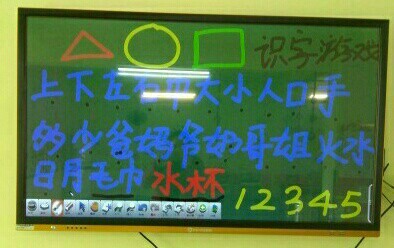 识字游戏
上下左右大小人口手
多少爸妈爷奶哥姐火水
日月毛巾水杯 12345